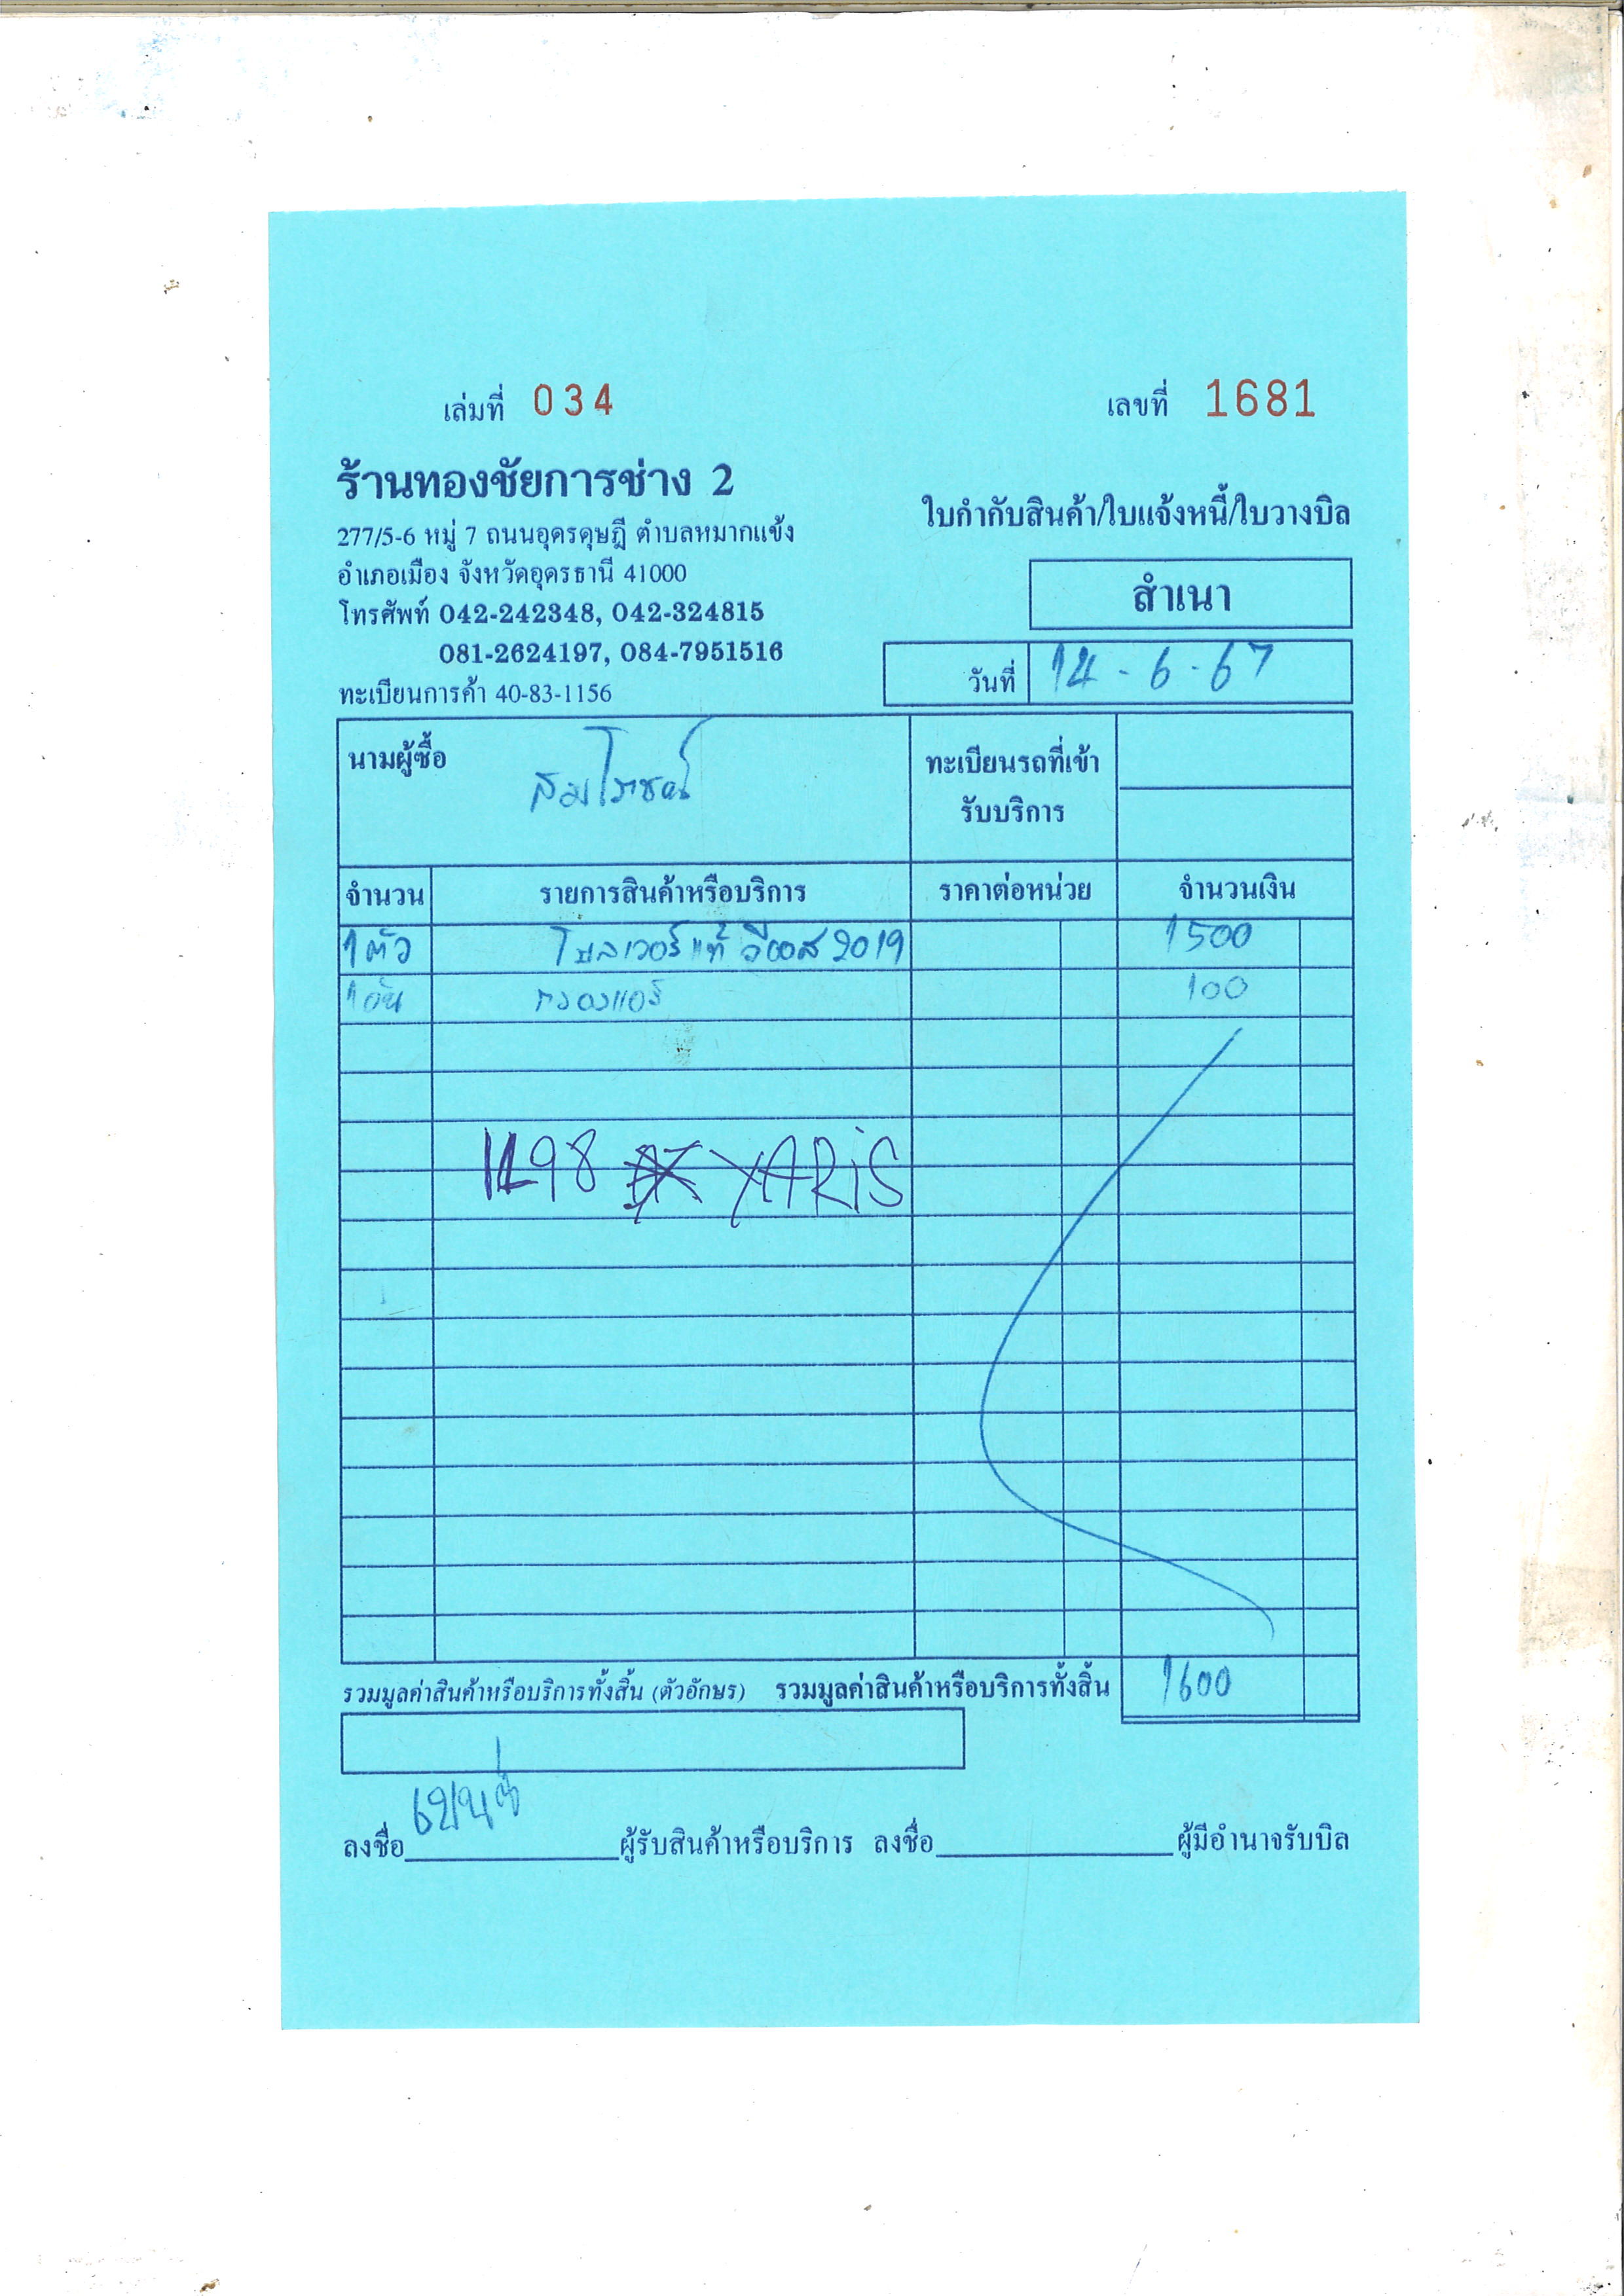 เล่มที่ 034 เลขที่ 1681
ร้านทองชัยการช่าง 2
ใบกำกับสินค้า/ใบแจ้งหนี้/ใบวางบิล
277/5-6 หมู่ 7 ถนนอุดรดุษฎี ตำบลหมากแข้ง
อำเภอเมือง จังหวัดอุดรธานี 41000
สำเนา
โทรศัพท์ 042-242348, 042-324815
081-2624197, 084-7951516
วันที่ 14-6-67
ทะเบียนการค้า 40-83-1156
นามผู้ซื้อ
ทะเบียนรถที่เข้า
รับบริการ
จำนวน รายการสินค้าหรือบริการ ราคาต่อหน่วย จำนวนเงิน
1 ตัว โบลเวอร์แท้ วีออส 2019 1500
1 อัน กรองแอร์ 100
YARiS
รวมมูลค่าสินค้าหรือบริการทั้งสิ้น (ตัวอักษร) รวมมูลค่าสินค้าหรือบริการทั้งสิ้น 1600
ลงชื่อ ผู้รับสินค้าหรือบริการ ลงชื่อ ผู้มีอำนาจรับบิล